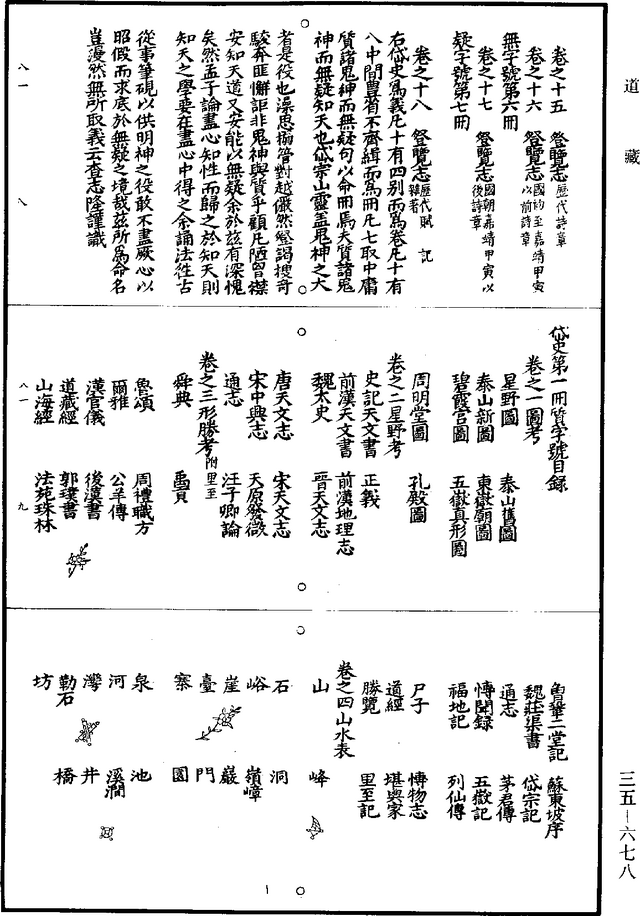 道藏
卷之十五　登覽志歷代詩章
卷之十六　登覽志國初至嘉靖甲寅以前詩章
無字號第六冊
卷之十七　登覽志國朝嘉靖甲寅以後詩章
疑字號第七冊
卷之十八　登覽志歷代賦記雜著
右岱史爲義凡十有四别而爲卷凡十有
八中間豐省不齊緝而爲冊凡七取中庸
質諸鬼神而無疑句以命冊焉夫質諸鬼
神而無疑知天也岱宗山靈蓋鬼神之大
者是役也澡思搦管對越儼然堅謁搜奇
駿奔匪懈詎非鬼神與質乎顧凡陋曾襟
安知天道又安能以無疑余於茲有深愧
矣然孟子論盡心知性而歸之於知天則
知天之學要在盡心中得之余誦法往古
從事筆硯以供明神之役敢不盡厥心以
昭假而求底於無疑之境哉茲所爲命名
豈漫然無所取義云查志隆謹識
八一　八
岱史第一冊質字號目錄
卷之一圖考
星野圖　泰山舊圖
泰山新圖　東嶽廟圖
碧霞宫圖　五嶽真形圖
周明堂圖　孔殿圖
卷之二星野考
史記天文書　正義
前漢天文書　前漢地理志
魏太史　晉天文志
唐天文志　宋天文志
宋中興志　天原發微
通志　汪子卿論
卷之三形勝考附里至
舜典　禹貢
魯頌　周禮職方
爾雅　公羊傳
漢官儀　後漢書
道藏經　郭璞書
山海經　法苑珠林
八一　九
魯華二堂記　蘇東坡序
魏莊渠書　岱宗記
通志　茅君傳
博聞錄　五嶽記
福地記　列仙傳
尸子　博物志
道經　堪輿家
勝覽　里至記
卷之四山水表
山　峰
石　洞
峪　嶺嶂
崖　巖
臺　門
寨　園
泉　池
河　溪澗
灣　井
勒石　橋
坊
三五—六七八